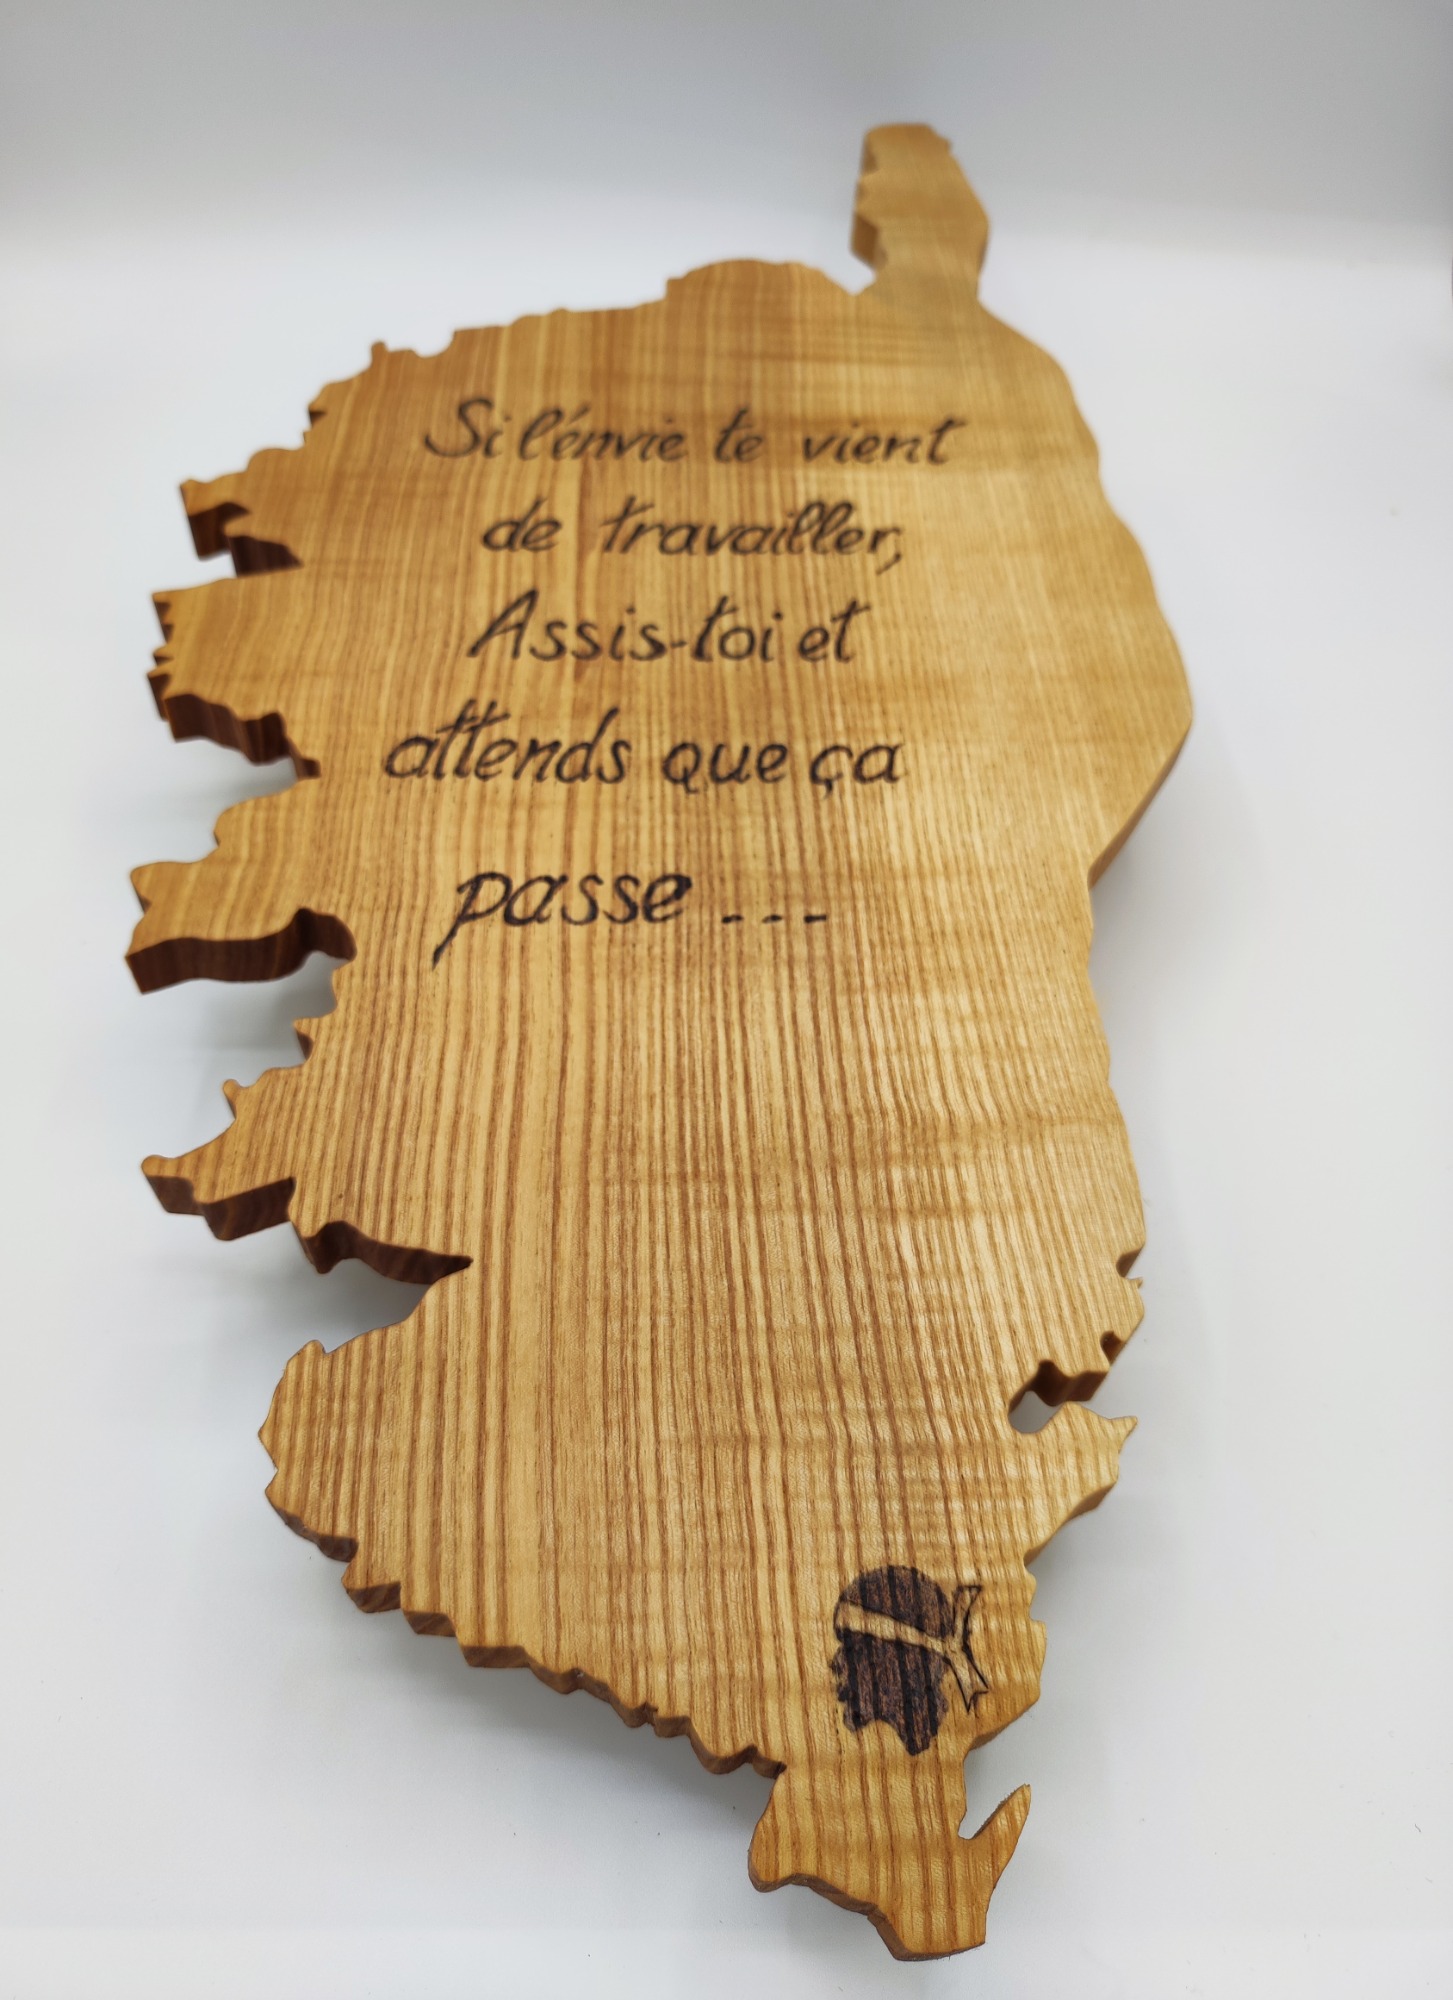 Si l'énvie te vient
de travailler,
Assis-toi et
attends que ça
passe ---